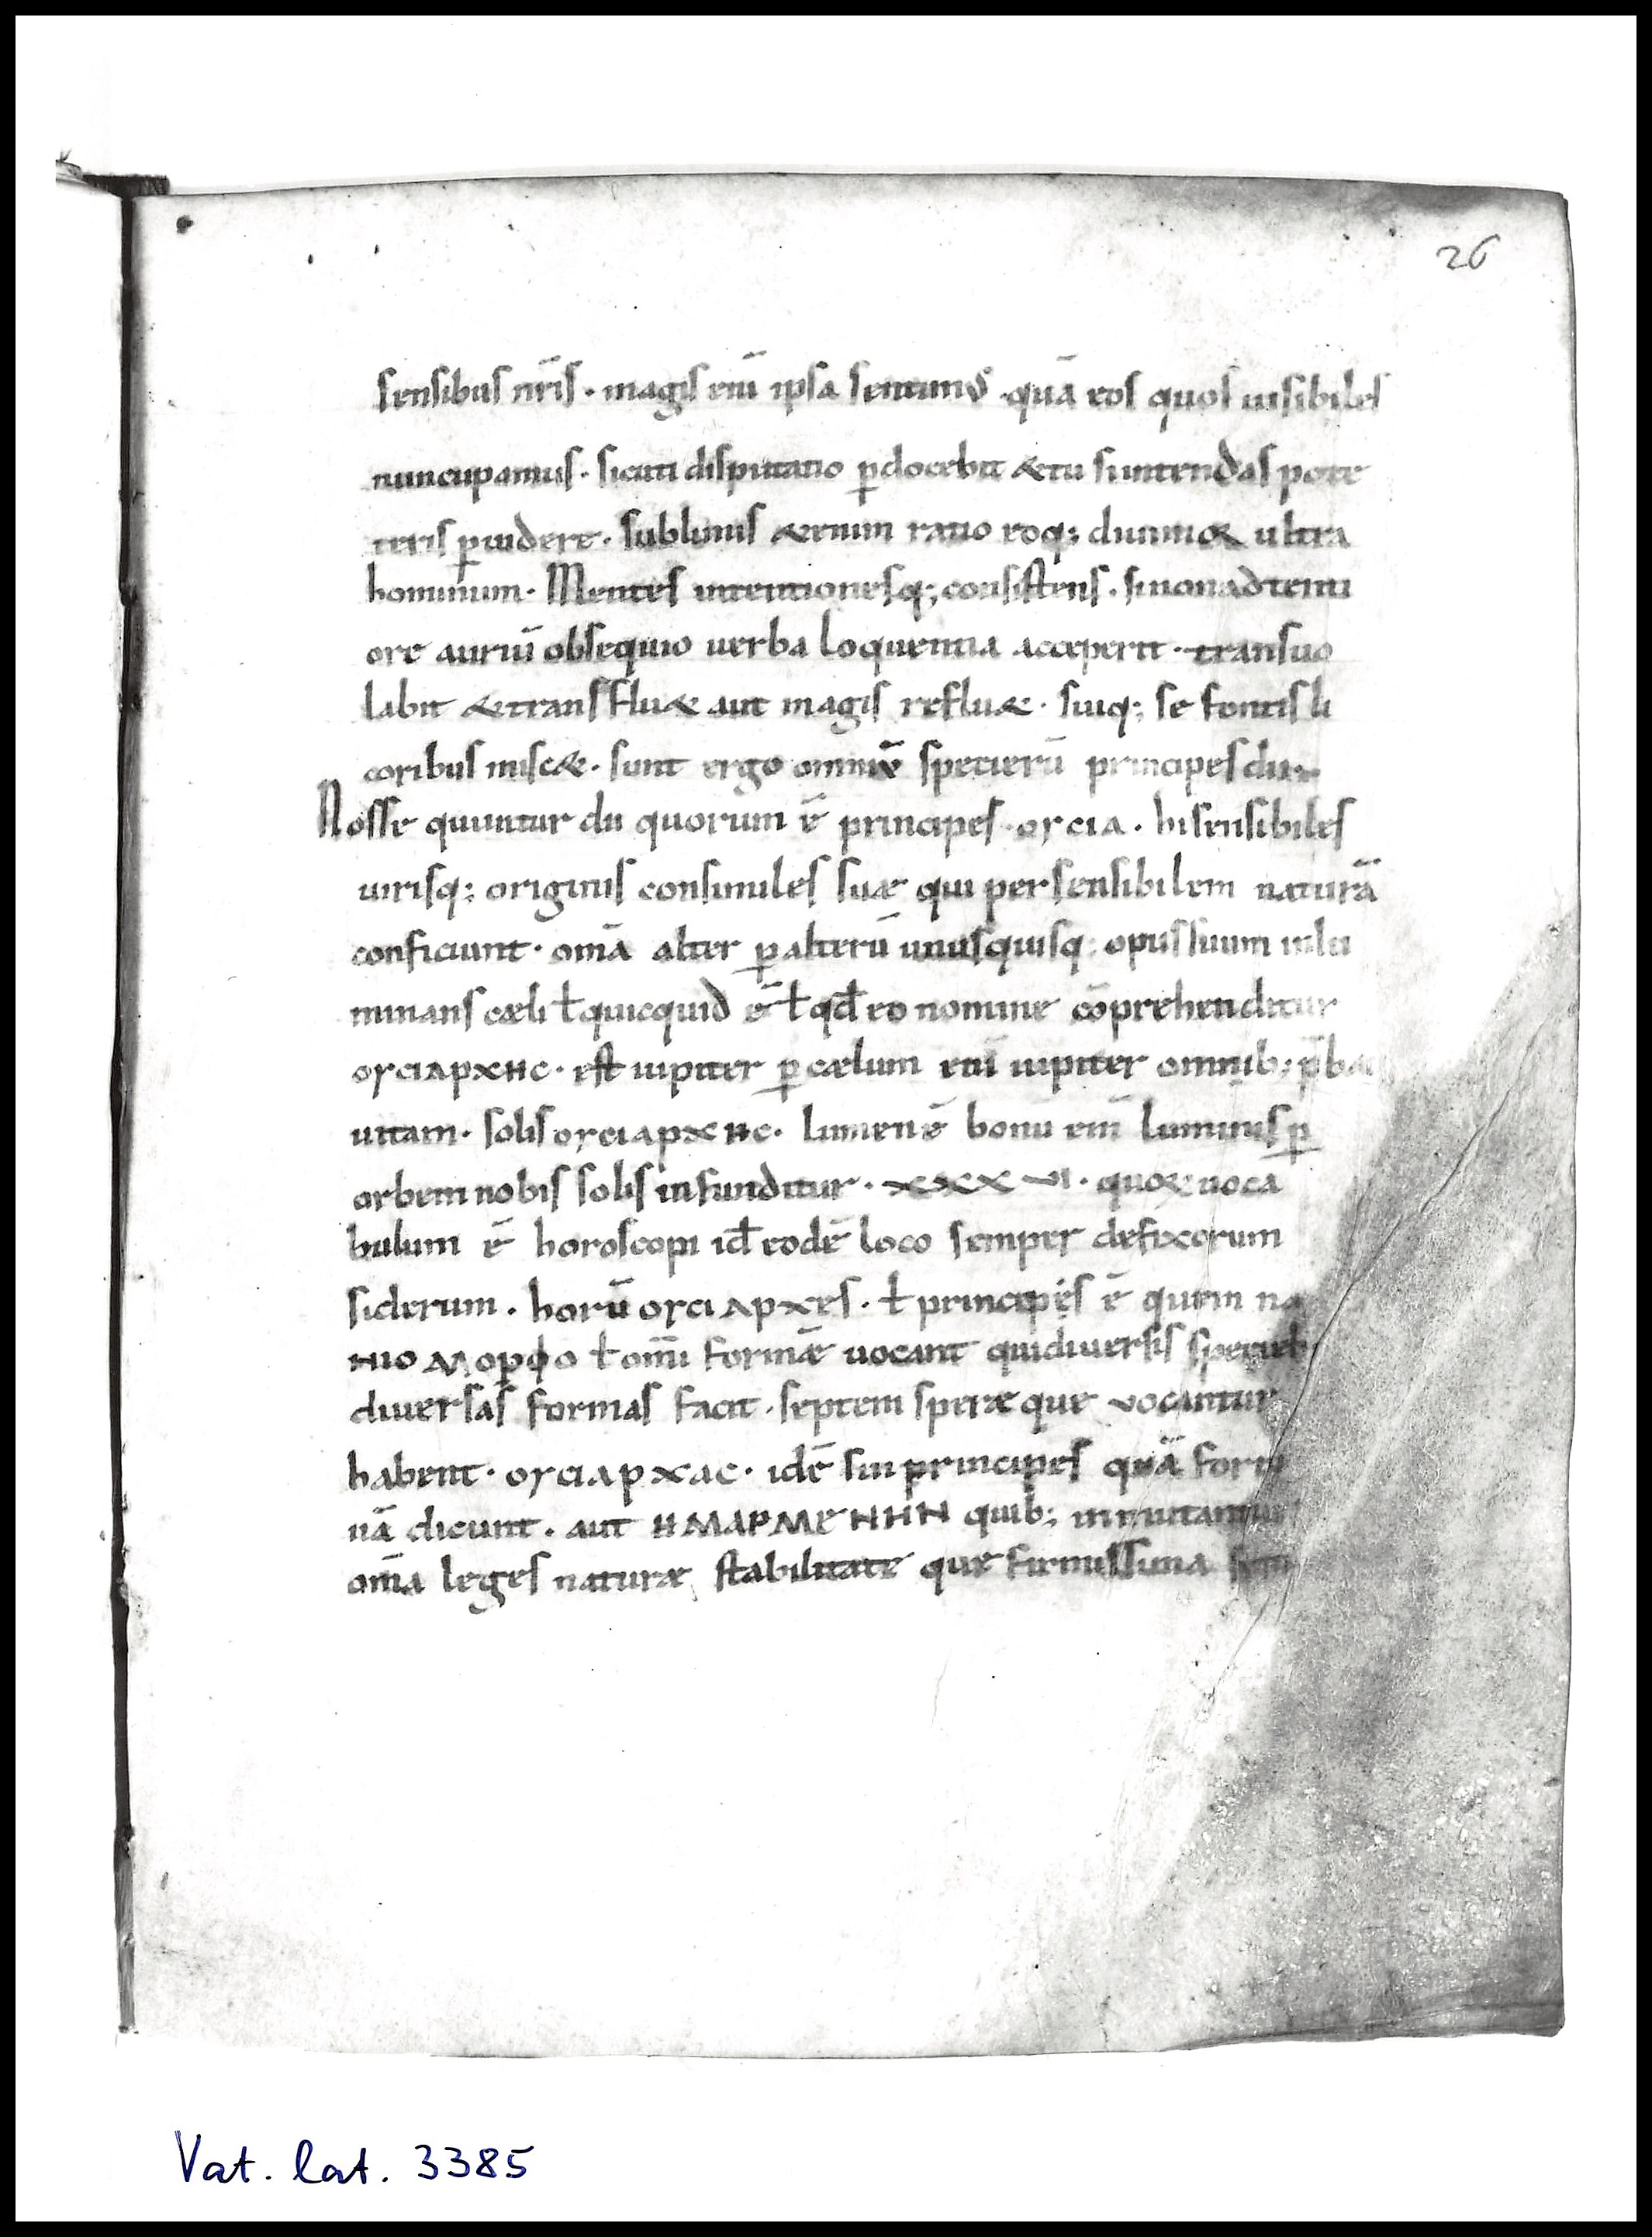 26
sensibus nr̄is . magis enī ipsa sentimus quā eos quos uisibiles
nuncupamus . sicuti disputatio ꝑdocebit &tu si intendas pote
teris ꝑuidere . sublimis &enim ratio eoq; diuinior ultra
hominum . Mentes intentionesq; consistens . si non ad tenti
ore auriū obsequio uerba loquentia acceperit . transuo
labit &transflu& aut magis reflu& . suiq; se fontis li
coribus misc& . sunt ergo omniū specierū principes dii
Nosse quuntur dii quorum ē principes . oycia . hi sensibiles
utrisq; originis consimiles suae qui per sensibilem naturā
conficiunt . om̄a alter ꝑ alterū unusquisq; opus suum inlu
minans caeli ł quicquid ē ł qđ eo nomine cōprehenditur
oyciapxHc . est iupiter ꝑ caelum enī iupiter omnib; p̄b&
uitam . solis oyciapxHc . lumen ē bonū enī luminis ꝑ
orbem nobis solis infunditur . xxxvi . quor uoca
bulum ē horoscopi iđ eodē loco semper defixorum
siderum . horū oyciapxes . ł principes ē quem
Nιο Μορφο ł om̄i formē uocant qui diuersis
diuersas formas facit . septem sperae que vocantur
habent . oyciapxac . idē sui principes quā
nā dicunt . aut HΜΑΡΜΕΝΗΝ quib; inmutantur
om̄a leges naturae stabilitate quae firmissima
Vat. lat. 3385